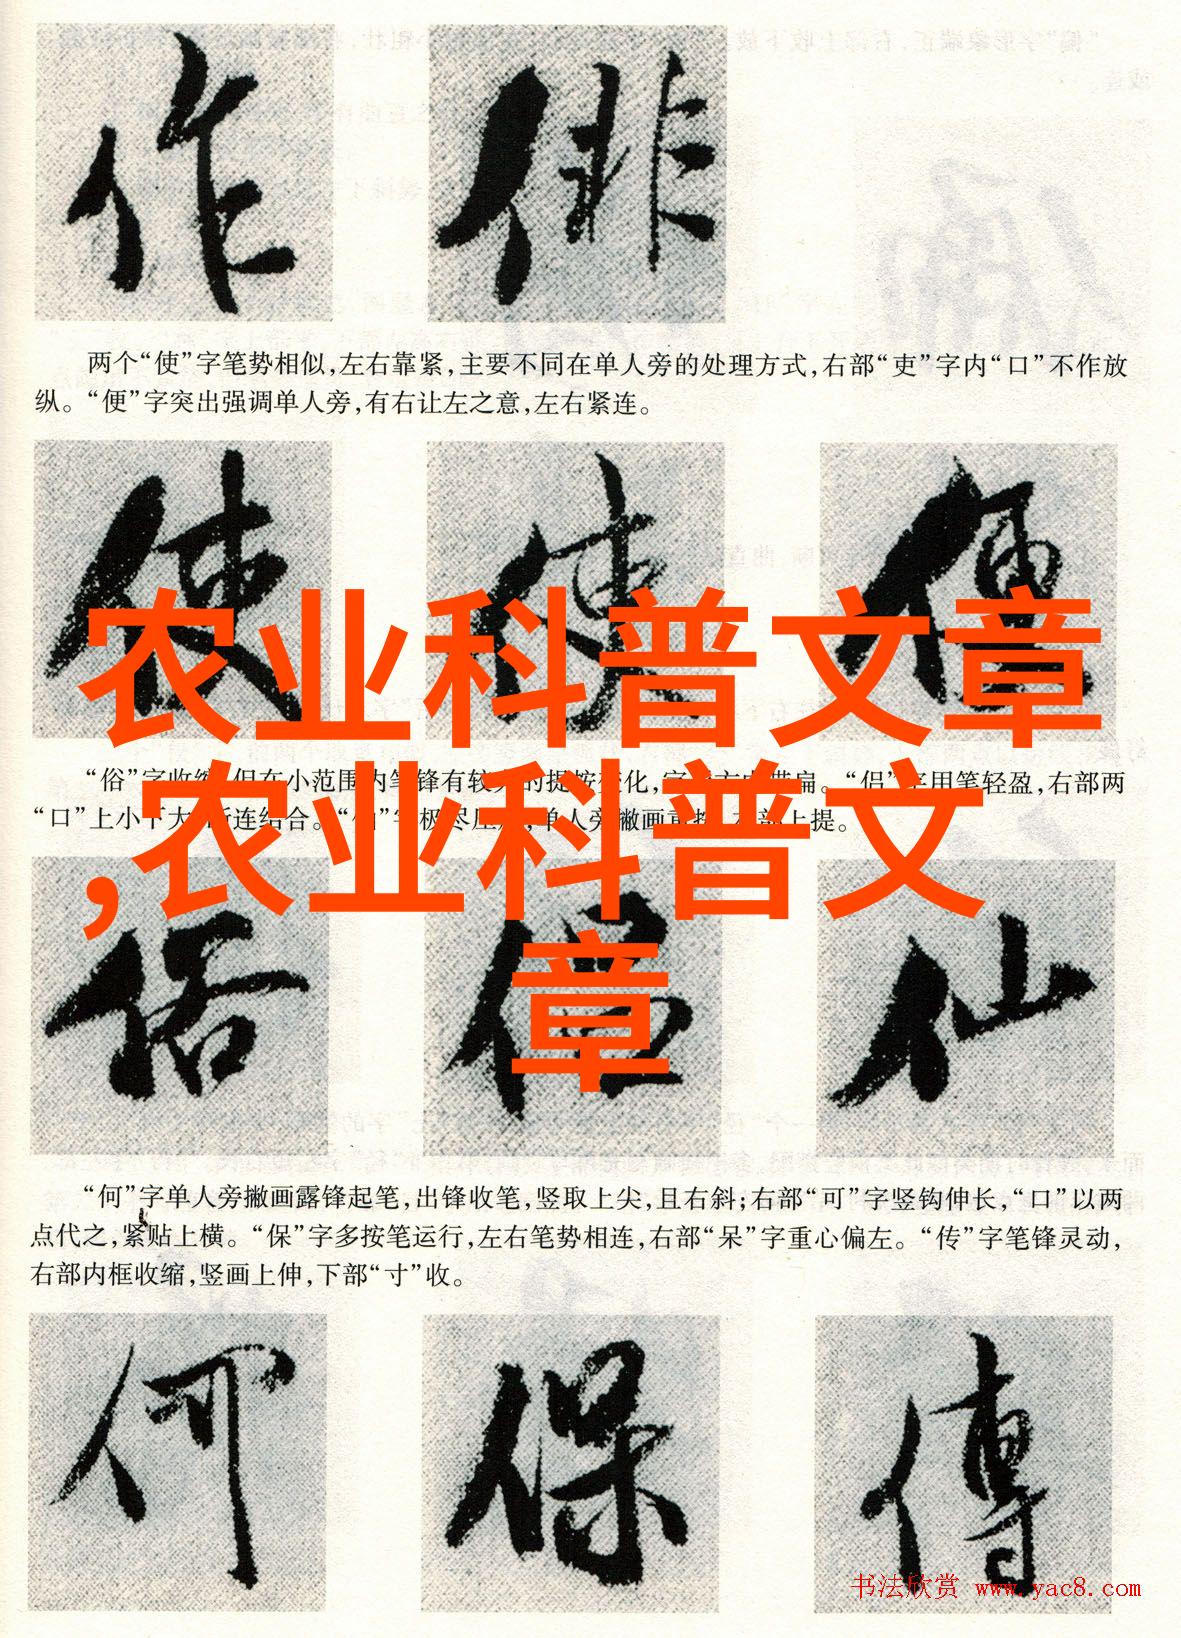 作 俳
两个“使”字笔势相似,左右靠紧,主要不同在单人旁的处理方式,右部“吏”字内“口”不作放
纵。“便”字突出强调单人旁,有右让左之意,左右紧连。
使 使 便
农业科普文章
“俗”字收缩,但在小范围内笔锋有较大的提按变化,字
扁。“侣”字用笔轻盈,右部两
,农业科普文
“口”上小下大,断连结合。“仙”字极尽
,单人旁撇画重按,右部上提。
俗 侣 仙
章
“何”字单人旁撇画露锋起笔,出锋收笔,竖取上尖,且右斜;右部“可”字竖钩伸长,“口”以两
点代之,紧贴上横。“保”字多按笔运行,左右笔势相连,右部“呆”字重心偏左。“传”字笔锋灵动,
右部内框收缩,竖画上伸,下部“寸”收。
何 保 傳
书法欣赏 www.yac8.com